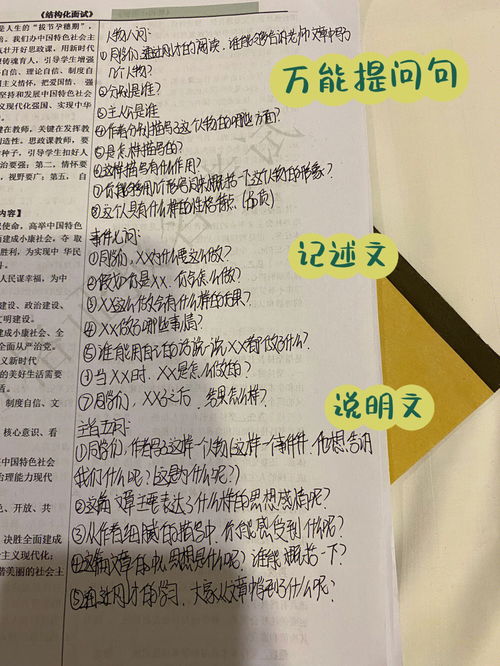 《结构化面试》
是人生的“拔节孕穗期”，
培。我们办中国特色社会主
气壮开好思政课，用新时代
铸魂育人，引导学生增强
自信、理论自信、制度自
国主义情怀，把爱国情、强
坚持和发展中国特色社会
义现代化强国、实现中华
键在教师，关键在发挥教
创造性。思政课教师，要
种子，引导学生扣好人
治要强；第二，情怀要
，视野要广；第五，自
内容】
使命，高举中国特色
面建成小康社会，夺取
胜利，为实现中华民
人民谋幸福，为中
建设、政治建设、
文明建设。
建成小康社会、全
全面从严治党。
义新时代
的美好生活需要
盾。
制度自信、文
核心意识、看
中国特色社会
治理能力现代
色、开放、共
决胜全面建成
主义现代化；
谐美丽的社会主
人物八问：
①同学们，通过刚才的阅读，谁能够告诉老师文章中写了
几个人物？
②分别是谁？
③主人公是谁
④作者分别描写了这个人物的哪些方面？
⑤是怎样描写的？
⑥这样描写有什么作用？
⑦你能够用几个形容词来概括一下这个人物的形象？
⑧这个人具有什么样的性格
事件七问：
①同学们，XX为什么这么做？
②假如你是XX，你会怎么做？
③XX这么做会有什么样的后果？
④XX做了哪些事情？
⑤谁能用自己的话说一说XX都做了什么？
⑥当XX时，XX是怎么做的？
⑦同学们，XX之后，结果怎么样？
主旨五问：
①同学们，作者写了这样一个人物（这样一个事件），他想告诉
我们什么呢？（这是为什么呢？）
②这篇文章主要表达了什么样的思想感情呢？
③从作者细腻的描写中，你能感受到什么呢？
④这篇文章的中心思想是什么呢？谁能概括一下？
⑤通过刚才的学习，大家从文章中学到了什么呢？
万能提问句
记述文
说明文